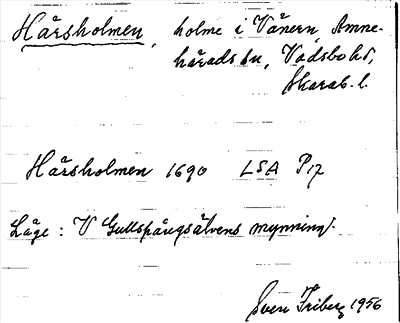 Hårsholmen, holme i Vänern, Amne-
härads sn, Vadsbo hd,
Skarab. l.
Hårsholmen 1690 LSA P17
Läge: V Gullspångsälvens mynning.
Sven Friberg 1956